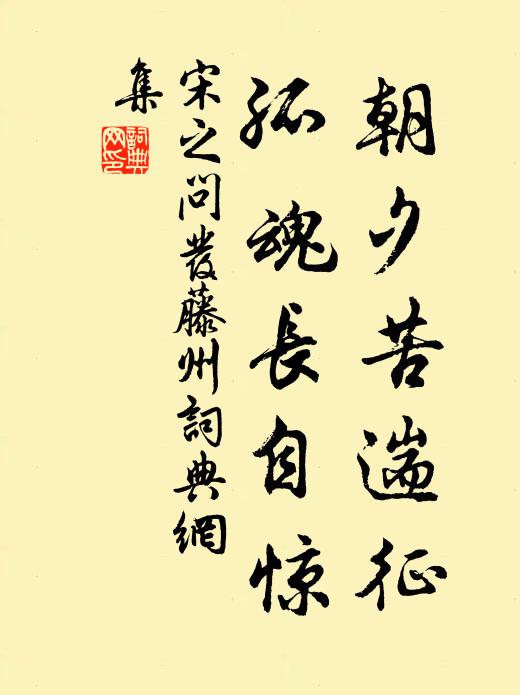 朝夕苦遄征
孤魂長自惊
宋之问發藤州詞典網
集
詞典网印